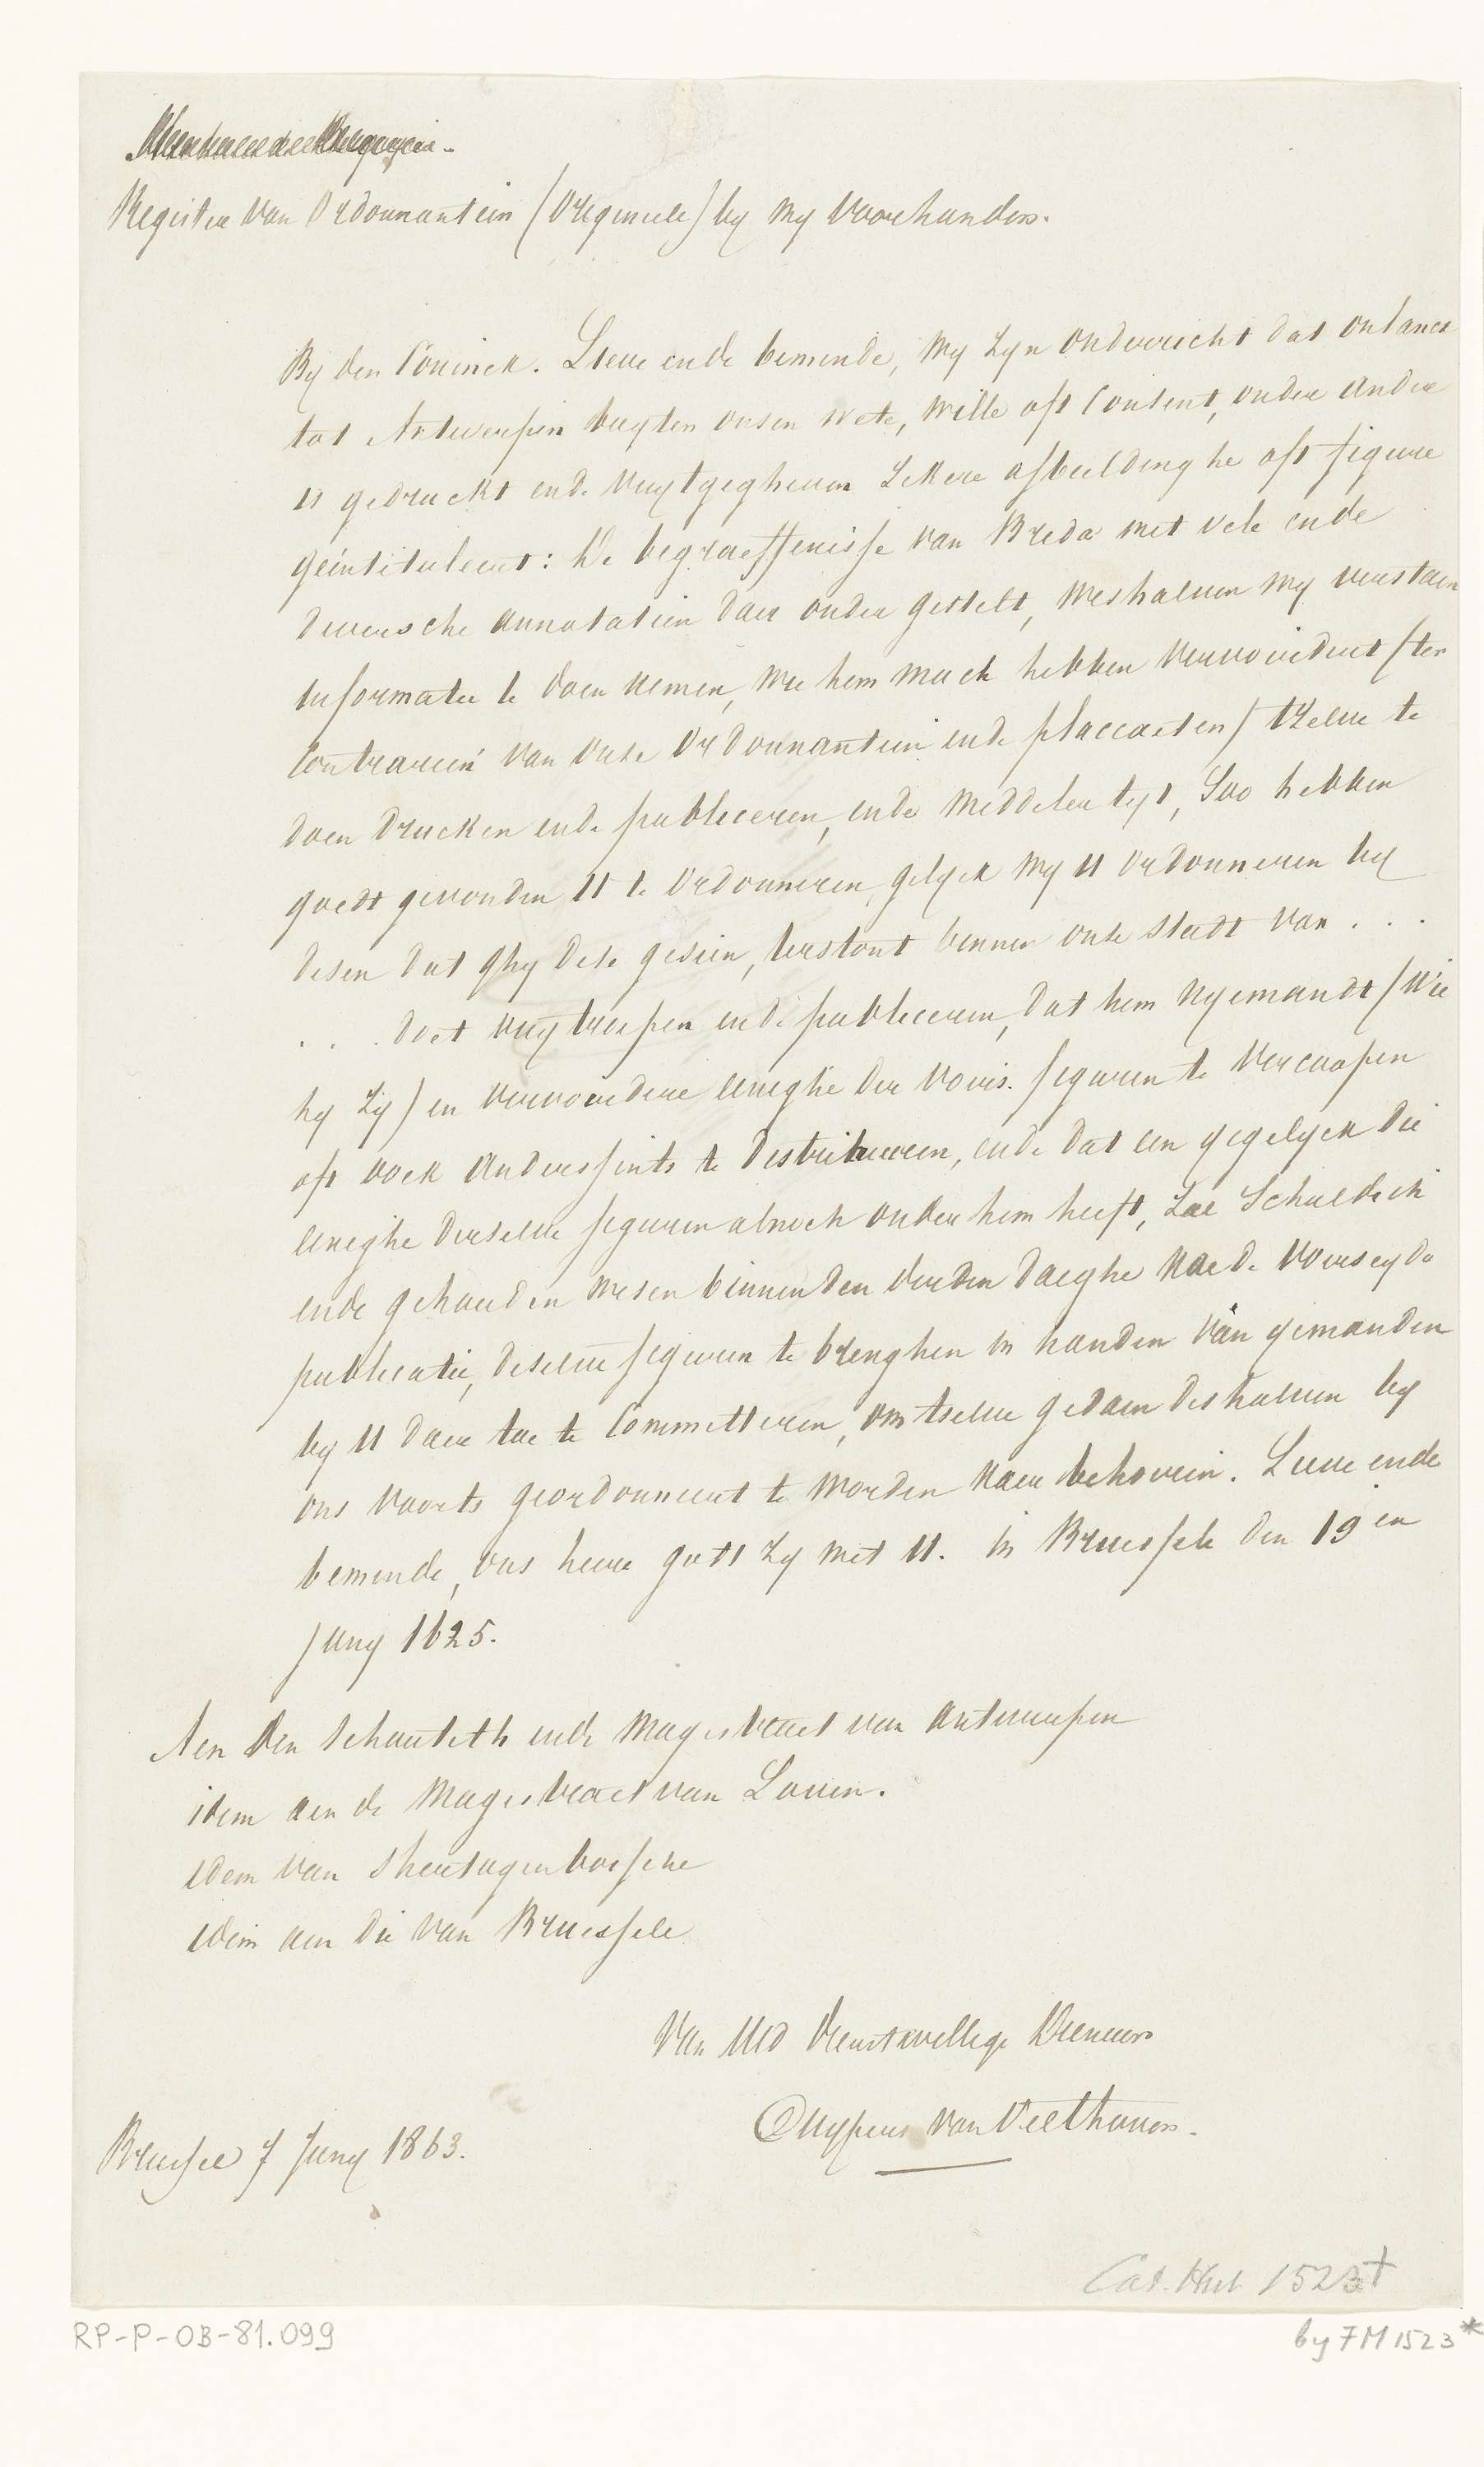 Register van Ordonnantien (origineele) by my voorhanden.
By den Coninck. Lieve ende beminde, Wy zyn onderricht dat onlancx
tot Antwerpen buyten onsen wete, wille oft Consent, onder ander
is gedruckt ende vuytgegheven zekere afbeeldinghe oft figure
geintituleert: De begraeffenisse van Breda met vele ende
diversche annotatien daer onder gestelt, weshalven wy verstaen
informatie te doen nemen, wie hem mach hebben vervoirdert /ter
Contrarien van onse Ordonnantien ende placcaeten/ tzelve te
doen drucken ende publiceren, ende middelen tyt, Soo hebben
goedt gevonden U te ordonneren, gelyck wy U ordonneren by
desen dat ghy dese gesien, terstont binnen onse stadt van . . .
. . . doet vuytroepen ende publiceren, dat hem nyemandt /wie
hy zy/ en vervoirdere eenighe der voirs. figuren te vercoopen
oft oock anderssints te distribueren, ende dat een yegelyck die
eenighe derselve figuren alnoch onder hem heeft, zal schuldich
ende gehouden wesen binnen den derden daeghe nae de voirseyde
publicatie, deselve figuren te brenghen in handen van yemanden
by U daer toe te Committeren, om tselve gedaen deshalven by
ons voorts geordonneert te worden naer behooren. Lieve ende
beminde, ons heere godt zy met U. in Bruessele den 19en
Juny 1625.
Aen den Schouteth ende Magistraet van Antwerpen
idem aen de Magistraet van Loven.
idem van Shertogenbossche
idem aen die van Bruessele
Van UEd dienstwillige Dienaer
Cuypers van Velthoven.
Brussel 7 Juny 1863.
Cat. Mul 1523+
RP-P-OB-81.099
by FM 1523*